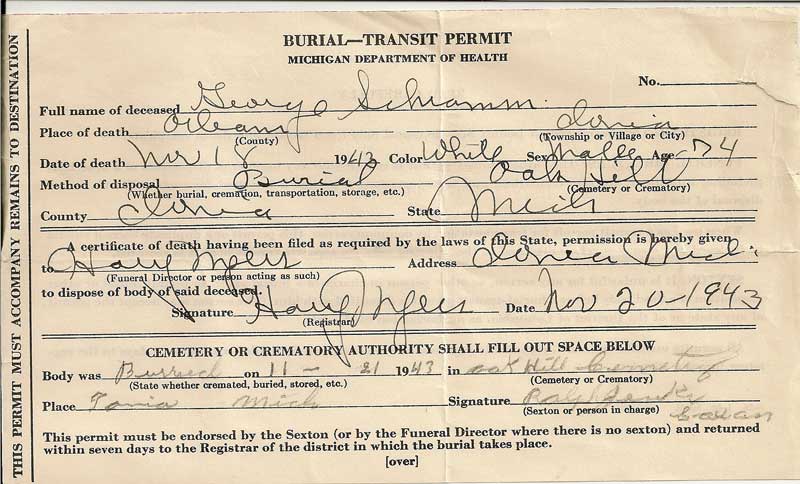 THIS PERMIT MUST ACCOMPANY REMAINS TO DESTINATION
BURIAL—TRANSIT PERMIT
MICHIGAN DEPARTMENT OF HEALTH
No.
Full name of deceased George Schramm
Place of death Orleans Ionia
(County) (Township or Village or City)
Date of death Nov 18 1943 Color White Sex Male Age 74
Method of disposal Burial Oak Hill
(Whether burial, cremation, transportation, storage, etc.) (Cemetery or Crematory)
County Ionia State Mich
A certificate of death having been filed as required by the laws of this State, permission is hereby given
to Harry Myers Address Ionia Mich.
(Funeral Director or person acting as such)
to dispose of body of said deceased.
Signature Harry Myers Date Nov 20-1943
(Registrar)
CEMETERY OR CREMATORY AUTHORITY SHALL FILL OUT SPACE BELOW
Body was Burried on 11 - 21 1943 in oak Hill Cemetery
(State whether cremated, buried, stored, etc.) (Cemetery or Crematory)
Place Ionia Mich Signature
(Sexton or person in charge)
This permit must be endorsed by the Sexton (or by the Funeral Director where there is no sexton) and returned
within seven days to the Registrar of the district in which the burial takes place.
[over]